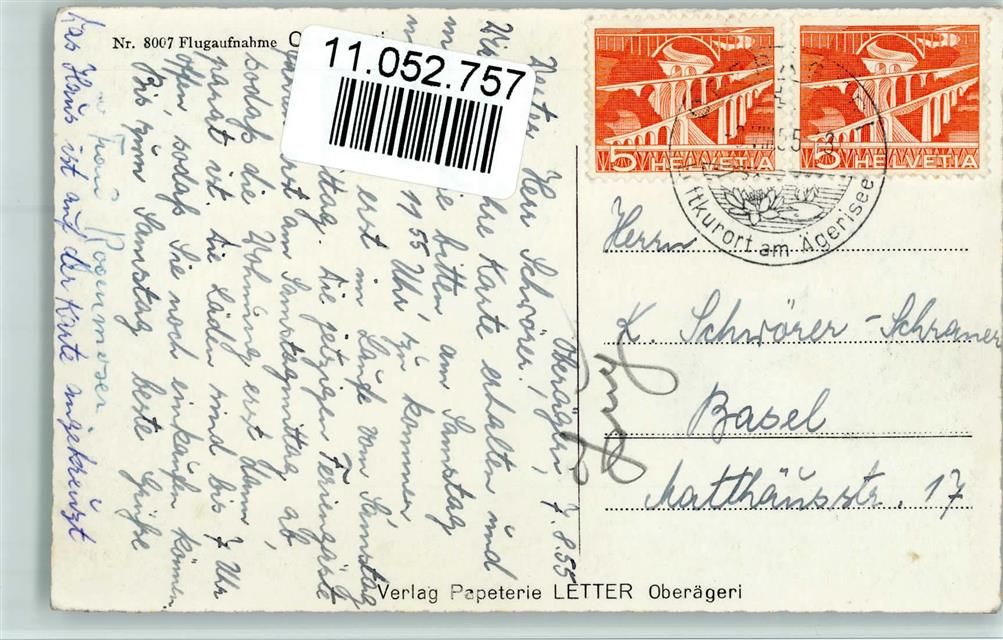 Nr. 8007 Flugaufnahme
11.052.757
5 HELVETIA
5 HELVETIA
ftkurort am Ägerisee
Oberägeri, 7.8.55
Werter Herr Schwörer!
Karte erhalten und
bitten am Samstag
1955 Uhr, zu kommen,
erst im Laufe vom Samstag
ttag. Die jetzigen Feriengäste
erst am Samstagmittag ab,
sodass die Wohnung erst dann
parat ist. Die Läden sind bis 7 Uhr
offen, sodass Sie noch einkaufen können.
Bis zum Samstag beste Grüsse
Frau Rosenmoser
Das Haus ist auf der Karte angekreuzt
Herrn
K. Schwörer-Schraner
Basel
Matthäusstr. 17
Verlag Papeterie LETTER Oberägeri